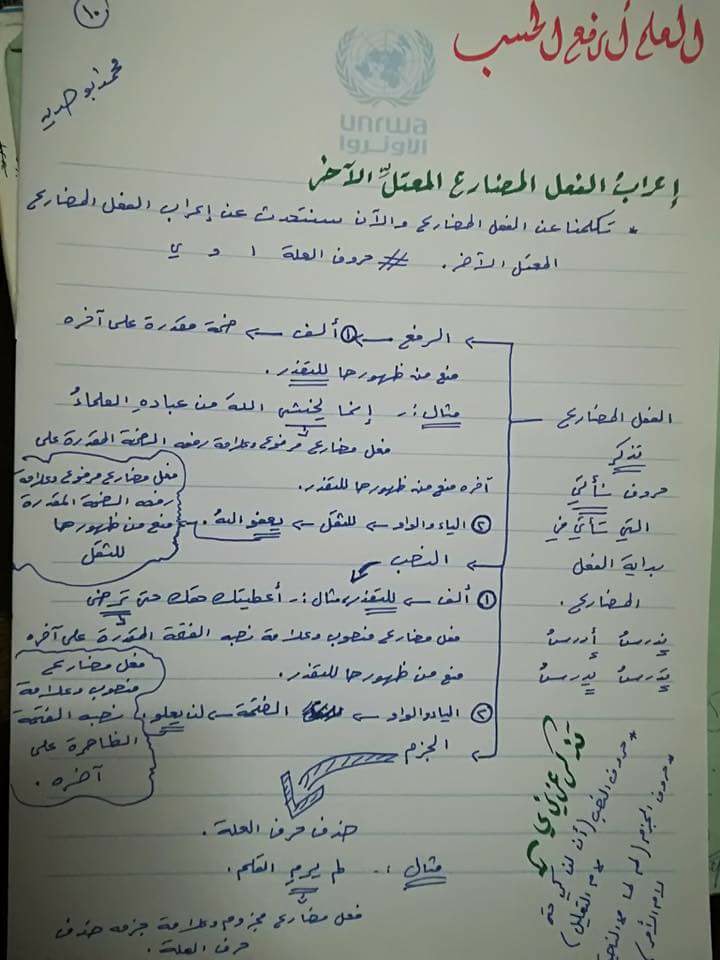 ١٠
العلم أرفع الحسب
محمد أبو
unrwa
الأونروا
إعراب الفعل المضارع المعتلّ الآخر
* تكلمنا عن الفعل المضارع والآن سنتحدث عن إعراب الفعل المضارع
المعتل الآخر. # حروف العلة ا و ي
الفعل المضارع
تذكر
حروف نأتي
التي تأتي في
بداية الفعل
المضارع.
ندرسُ أدرسُ
تدرسُ يدرسُ
الرفع ← ① ألف ← ضمة مقدرة على آخره
منع من ظهورها للتعذر.
مثال :. إنما يخشى اللهَ من عبادهِ العلماءُ
فعل مضارع مرفوع وعلامة رفعه الضمة المقدرة على
آخره منع من ظهورها للتعذر.
② الياء والواو ← للثقل ← يعفو الله.
فعل مضارع مرفوع وعلامة
رفعه الضمة المقدرة
منع من ظهورها
للثقل
النصب
① ألف ← للتعذر، مثال :. أعطيتك حقك حتى ترضى
فعل مضارع منصوب وعلامة نصبه الفتحة المقدرة على آخره
منع من ظهورها للتعذر.
② الياء والواو ← الفتحة ← لن يعلو
فعل مضارع
منصوب وعلامة
نصبه الفتحة
الظاهرة على
آخره.
الجزم
حذف حرف العلة.
مثال :. لم يرمِ القلم.
فعل مضارع مجزوم وعلامة جزمه حذف
حرف العلة.
تذكر عزيزي
* حروف النصب (أن لن كي حتى
لام التعليل)
* حروف الجزم (لم لما
لام الأمر)